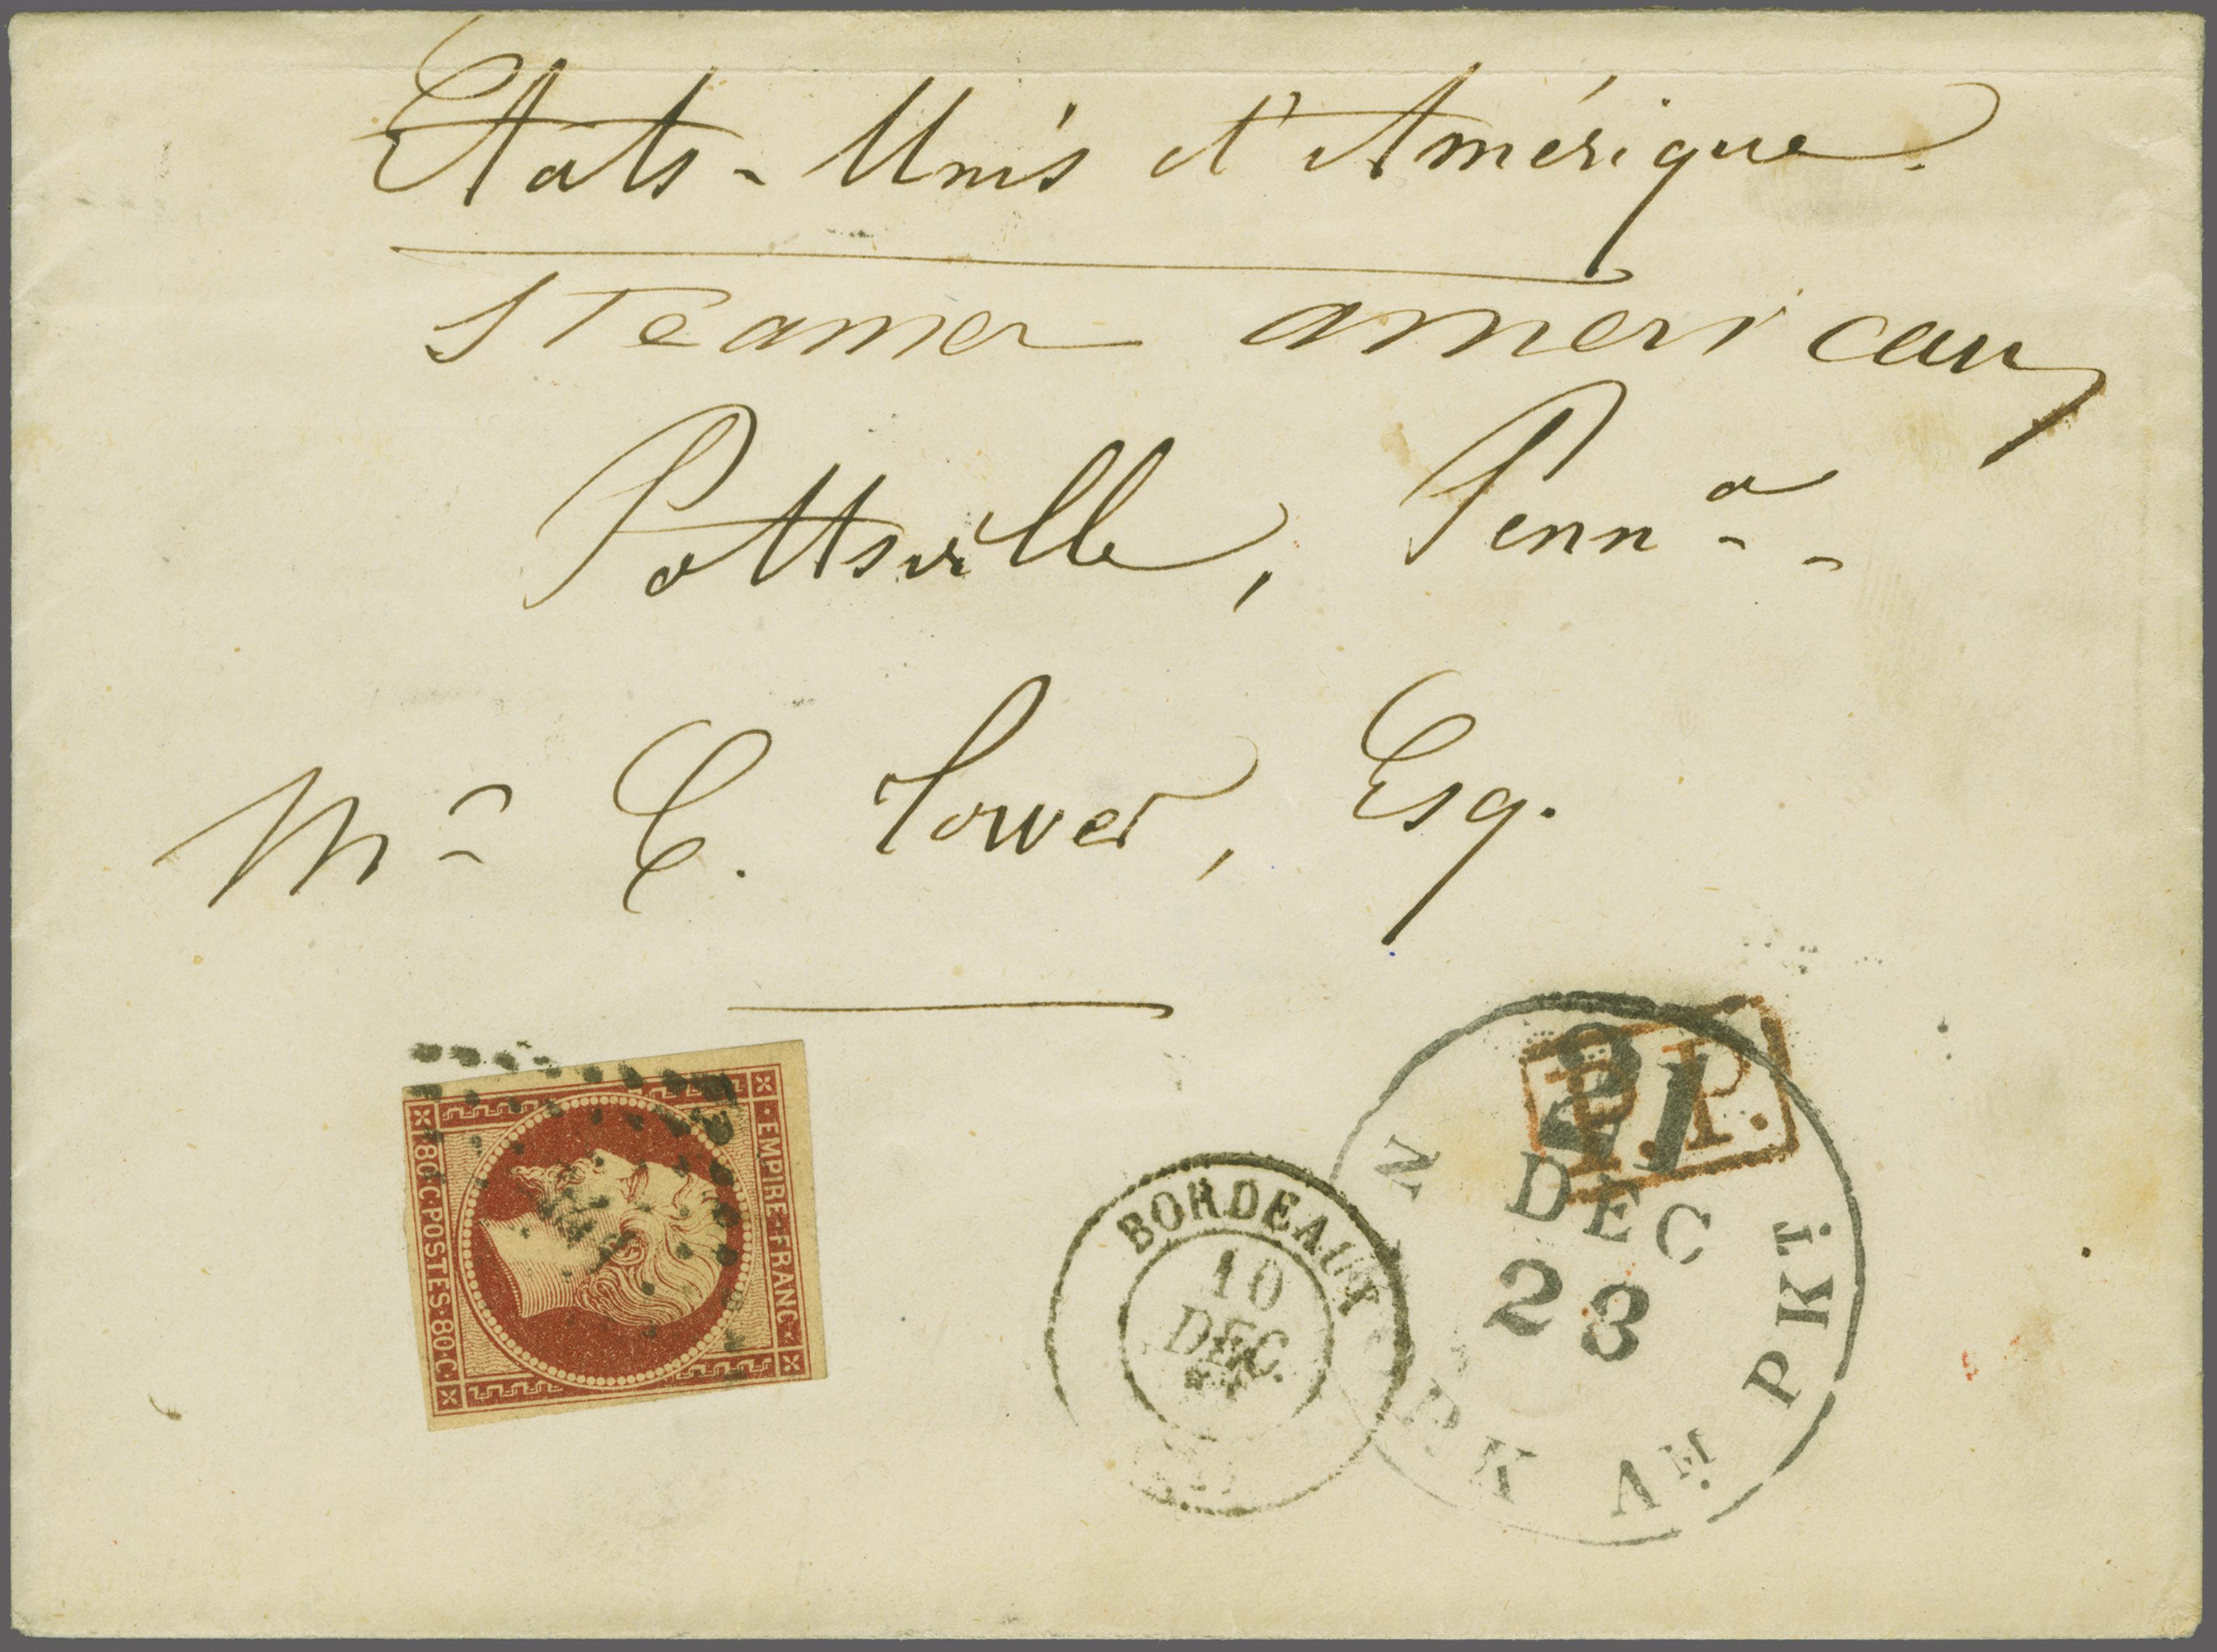 Etats-Unis d'Amérique.
Steamer americain
Pottsville, Penn.a
Mr. C. Tower, Esq.
EMPIRE · FRANC ·
· 80 · C · POSTES · 80 · C ·
BORDEAUX
10
DEC.
P.P.
21
N YK AM PKT
DEC
23